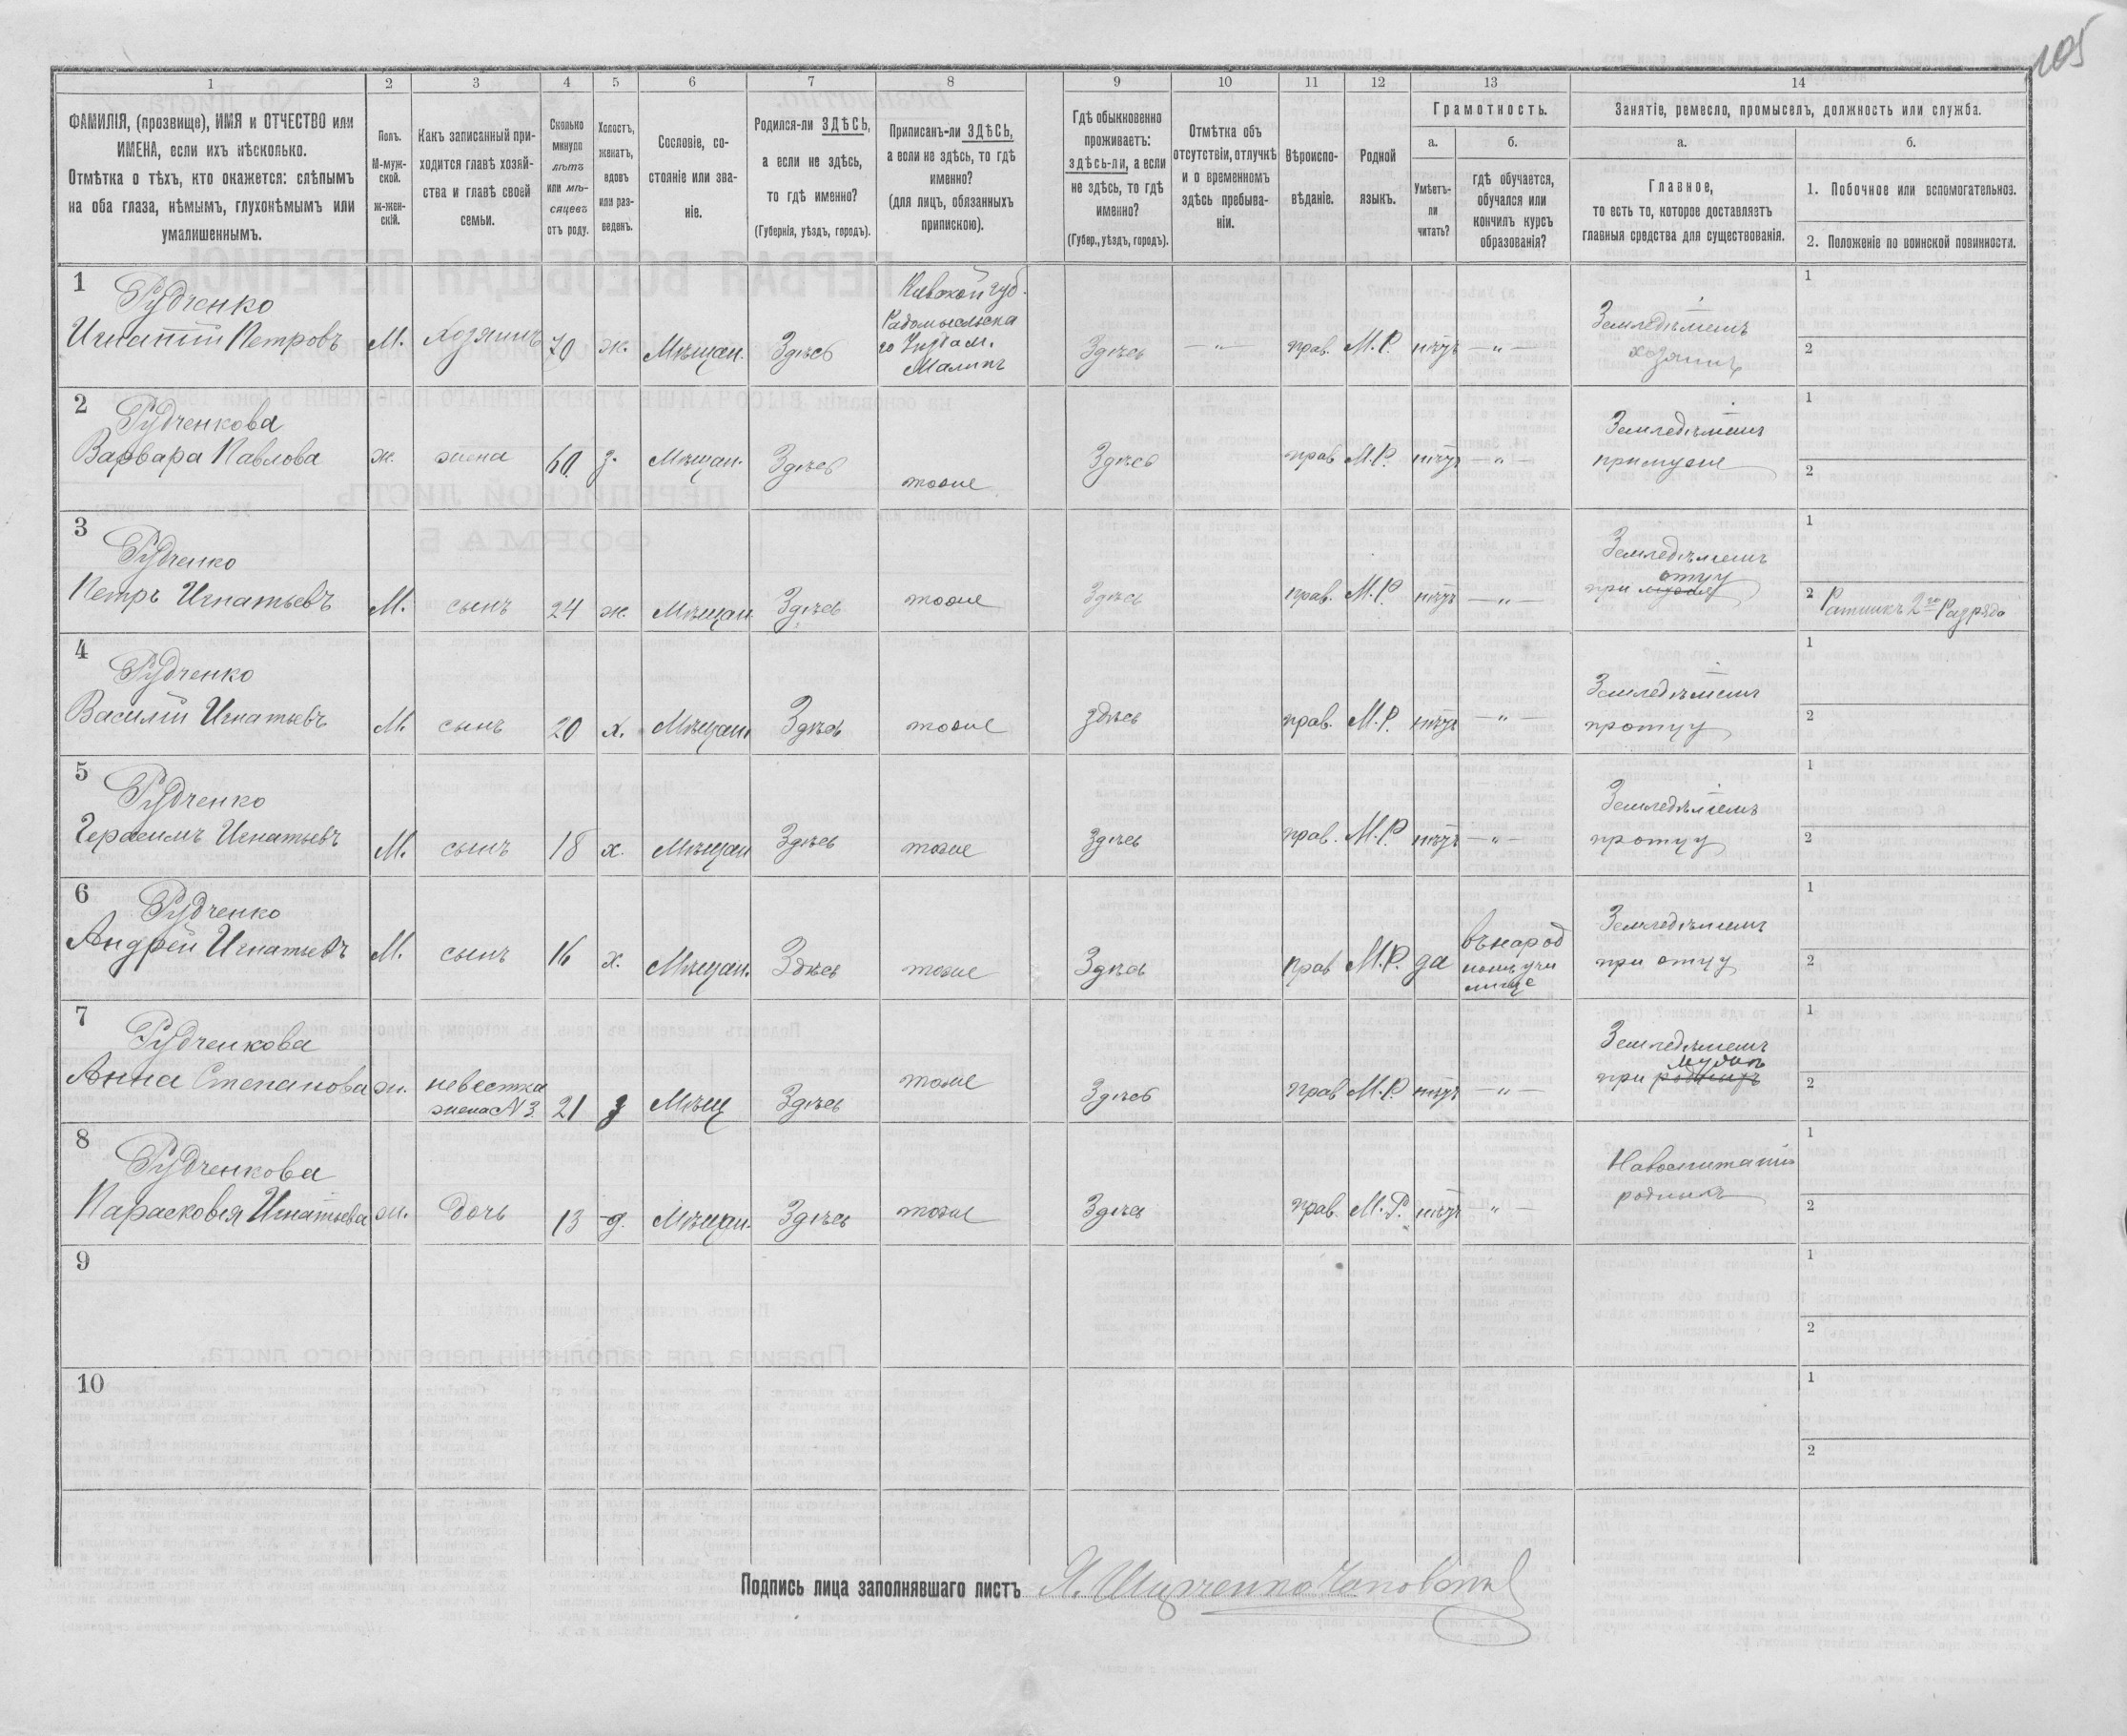 105
1 2 3 4 5 6 7 8 9 10 11 12 13 14
ФАМИЛІЯ, (прозвище), ИМЯ и ОТЧЕСТВО или
ИМЕНА, если ихъ нѣсколько.
Отмѣтка о тѣхъ, кто окажется: слѣпымъ
на оба глаза, нѣмымъ, глухонѣмымъ или
умалишеннымъ.
Полъ.
М-муж-
ской.
ж-жен-
скій.
Какъ записанный при-
ходится главѣ хозяй-
ства и главѣ своей
семьи.
Сколько
минуло
лѣтъ
или мѣ-
сяцевъ
отъ роду.
Холостъ,
женатъ,
вдовъ
или раз-
веденъ.
Сословіе, со-
стояніе или зва-
ніе.
Родился-ли ЗДѢСЬ,
а если не здѣсь,
то гдѣ именно?
(Губернія, уѣздъ, городъ).
Приписанъ-ли ЗДѢСЬ,
а если не здѣсь, то гдѣ
именно?
(для лицъ, обязанныхъ
припискою).
Гдѣ обыкновенно
проживаетъ:
здѣсь-ли, а если
не здѣсь, то гдѣ
именно?
(Губер., уѣздъ, городъ).
Отмѣтка объ
отсутствіи, отлучкѣ
и о временномъ
здѣсь пребыва-
ніи.
Вѣроиспо-
вѣданіе.
Родной
языкъ.
Грамотность.
а.
Умѣетъ-
ли
читать?
б.
гдѣ обучается,
обучался или
кончилъ курсъ
образованія?
Занятіе, ремесло, промыселъ, должность или служба.
а.
Главное,
то есть то, которое доставляетъ
главныя средства для существованія.
б.
1. Побочное или вспомогательное.
2. Положеніе по воинской повинности.
1
Рудченко
Игнатій Петровъ
М.
хозяинъ
70
ж.
Мѣщан.
Здѣсь
Кіевской губ.
Радомысльска
го Уѣзда м.
Малинъ
Здѣсь
— „ —
прав.
М.Р.
нѣтъ
— „ —
Земледѣлiемъ
хозяинъ
1
2
2
Рудченкова
Варвара Павлова
ж.
жена
60
з.
Мѣщан.
Здѣсь
тоже
Здѣсь
прав
М.Р.
нѣтъ
— „ —
Земледѣлiемъ
при мужѣ
1
2
3
Рудченко
Петръ Игнатьевъ
М.
сынъ
24
ж.
Мѣщан.
Здѣсь
тоже
Здѣсь
прав.
М.Р.
нѣтъ
— „ —
Земледѣлiемъ
отцу
при
1
2 Ратникъ 2го Разряда
4
Рудченко
Василій Игнатьевъ
М.
сынъ
20
х.
Мѣщан.
Здѣсь
тоже
здѣсь
прав.
М.Р.
нѣтъ
— „ —
Земледѣлiемъ
при отцу
1
2
5
Рудченко
Герасимъ Игнатьевъ
М.
сынъ
18
х.
Мѣщан
Здѣсь
тоже
Здѣсь
прав.
М.Р.
нѣтъ
— „ —
Земледѣлiемъ
при отцу
1
2
6
Рудченко
Андрей Игнатьевъ
М.
сынъ
16
х.
Мѣщан.
Здѣсь
тоже
Здѣсь
прав
М.Р.
да
въ народ
номъ учи
лище
Земледѣлiемъ
при отцу
1
2
7
Рудченкова
Анна Степанова
ж.
невестка
жена №3
21
з
Мѣщ
Здѣсь
тоже
Здѣсь
прав
М.Р.
нѣтъ
— „ —
Земледѣлiемъ
мужѣ
при
1
2
8
Рудченкова
Парасковея Игнатьева
ж.
дочь
13
д.
Мѣщан.
Здѣсь
тоже
Здѣсь
прав.
М.Р.
нѣтъ
— „ —
На воспитаніи
родных
1
2
9
1
2
10
1
2
Подпись лица заполнявшаго листъ